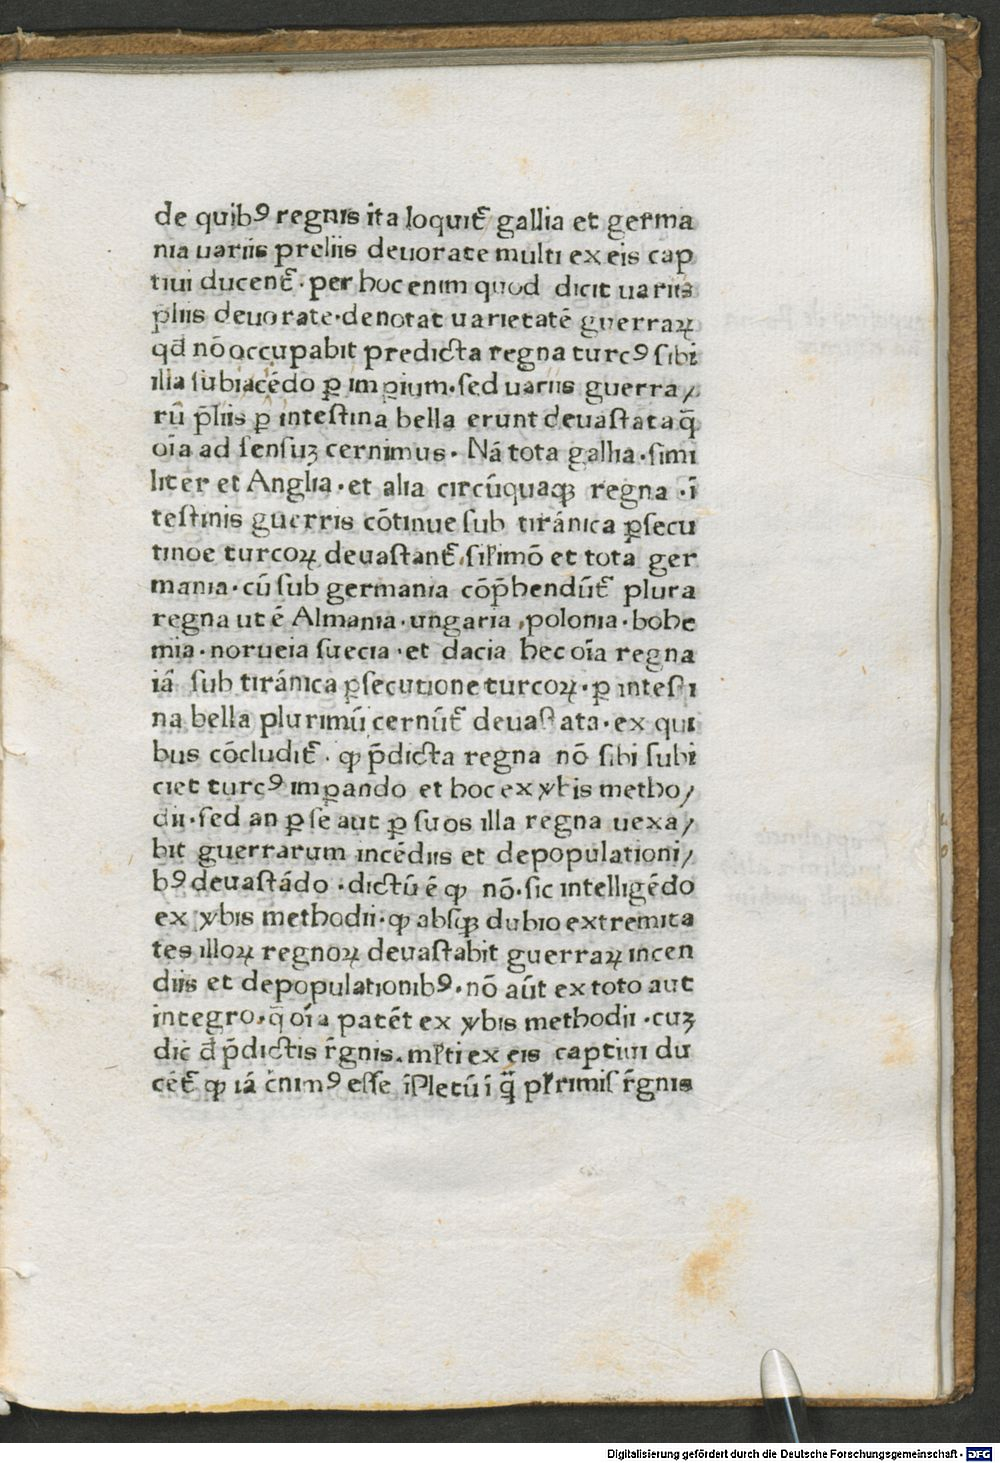 de quibꝰ regnis ita loquit᷑ gallia et germa
nia uariis preliis deuorate multi ex eis cap
tiui ducent᷑ · per hoc enim quod dicit uariis
p̄liis deuorate · denotat uarietatē guerraꝝ
qd̄ nō occupabit predicta regna turcꝰ sibi
illa subiacēdo ꝑ imꝑium · sed uariis guerra/
rū p̄liis ꝑ intestina bella erunt deuastata q̄
oīa ad sensuꝫ cernimus · Nā tota gallia · simi
liter et Anglia · et alia circūquaqꝫ regna · ī
testinis guerris cōtinue sub tiránica ꝑsecu
tinoe turcoꝝ deuastant᷑ , siƚimō et tota ger
mania · cū sub germania cōp̄hendūt᷑ plura
regna ut ē Almania · ungaria , polonia · bohe
mia · norueia suecia · et dacia hec oīa regna
iā sub tiránica ꝑsecutione turcoꝝ · ꝑ intesti
na bella plurimū cernūt᷑ deuastata · ex qui
bus cōcludit᷑ · ꝙ p̄dicta regna nō sibi subi
ciet turcꝰ imꝑando et hoc ex v̓bis metho/
dii · sed an ꝑ se aut ꝑ suos illa regna uexa/
bit guerrarum incēdiis et depopulationi/
bꝰ deuastādo · dictū ē ꝙ nō · sic intelligēdo
ex v̓bis methodii · ꝙ absqꝫ dubio extremita
tes illoꝝ regnoꝝ deuastabit guerraꝝ incen
diis et depopulationibꝰ · nō aūt ex toto aut
integro , q̄ oīa patēt ex v̓bis methodii · cuꝫ
dic̄ đ p̄dictis r̄gnis . mƚti ex eis captiui du
cēt᷑ ꝙ iā c̄nimꝰ esse īpletū ī q̄ pƚrimis r̄gnis
Digitalisierung gefördert durch die Deutsche Forschungsgemeinschaft - DFG